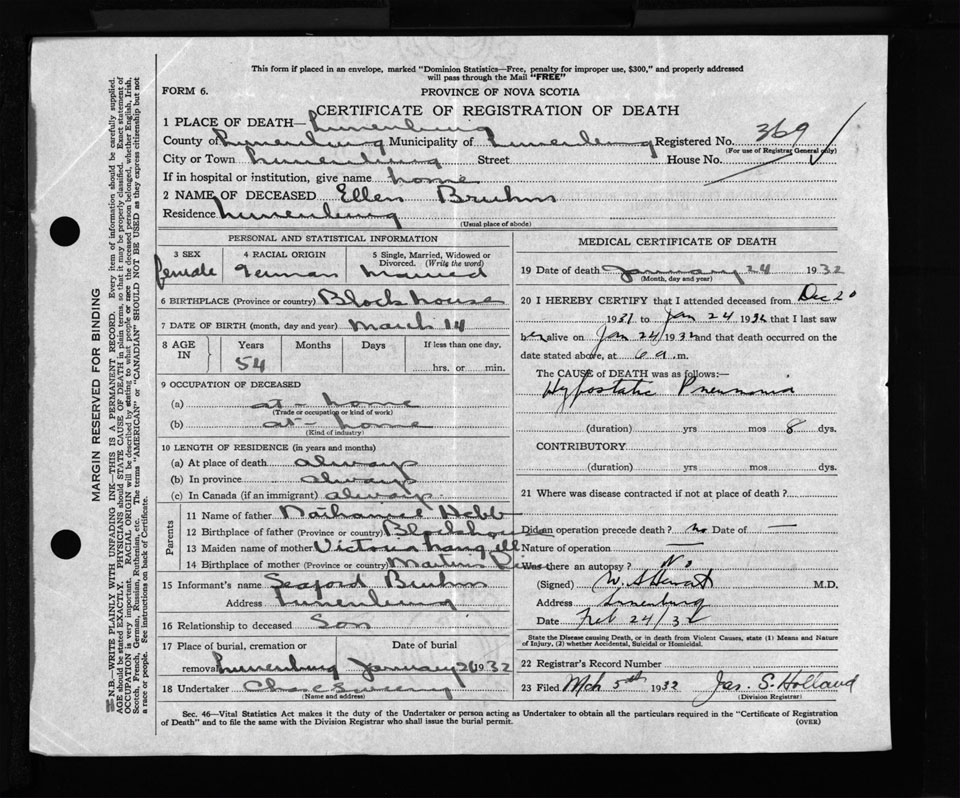 This form if placed in an envelope, marked "Dominion Statistics—Free, penalty for improper use, $300," and properly addressed
will pass through the Mail "FREE"
FORM 6.
PROVINCE OF NOVA SCOTIA
CERTIFICATE OF REGISTRATION OF DEATH
1 PLACE OF DEATH— Lunenburg
County of Lunenburg Municipality of Lunenburg Registered No. 369
(For use of Registrar General only)
City or Town Lunenburg Street House No.
If in hospital or institution, give name home
2 NAME OF DECEASED Ellen Bruhm
Residence Lunenburg
(Usual place of abode)
PERSONAL AND STATISTICAL INFORMATION
3 SEX
female
4 RACIAL ORIGIN
German
5 Single, Married, Widowed or
Divorced. (Write the word)
Married
6 BIRTHPLACE (Province or country) Blockhouse
7 DATE OF BIRTH (month, day and year) March 14
8 AGE
IN
Years
54
Months
Days
If less than one day,
hrs. or min.
9 OCCUPATION OF DECEASED
(a) at - home
(Trade or occupation or kind of work)
(b) at - home
(Kind of industry)
10 LENGTH OF RESIDENCE (in years and months)
(a) At place of death always
(b) In province always
(c) In Canada (if an immigrant) always
Parents
11 Name of father Nathaniel Hebb
12 Birthplace of father (Province or country) Blockhouse
13 Maiden name of mother Victoria Langille
14 Birthplace of mother (Province or country) Martins River
15 Informant's name Seaford Bruhm
Address Lunenburg
16 Relationship to deceased Son
17 Place of burial, cremation or Date of burial
removal Lunenburg January 26 1932
18 Undertaker Chas Sweeny
(Name and address)
MEDICAL CERTIFICATE OF DEATH
19 Date of death January 24 1932
(Month, day and year)
20 I HEREBY CERTIFY that I attended deceased from Dec 20
1931 to Jan 24 1932 that I last saw
her alive on Jan 24/1932 and that death occurred on the
date stated above, at 6 a .m.
The CAUSE of DEATH was as follows:—
Hypostatic Pneumonia
(duration) yrs mos 8 dys.
CONTRIBUTORY
(duration) yrs mos dys.
21 Where was disease contracted if not at place of death?
Did an operation precede death? no Date of —
Nature of operation —
Was there an autopsy? No
(Signed) M.D.
Address Lunenburg
Date Feb 24/32
State the Disease causing Death, or in death from Violent Causes, state (1) Means and Nature
of Injury, (2) whether Accidental, Suicidal or Homicidal.
22 Registrar's Record Number
23 Filed Mch 5th 1932 Jas. S. Holland
(Division Registrar)
Sec. 46—Vital Statistics Act makes it the duty of the Undertaker or person acting as Undertaker to obtain all the particulars required in the "Certificate of Registration
of Death" and to file the same with the Division Registrar who shall issue the burial permit.
(OVER)
MARGIN RESERVED FOR BINDING
N.B.—WRITE PLAINLY WITH UNFADING INK—THIS IS A PERMANENT RECORD. Every item of information should be carefully supplied.
AGE should be stated EXACTLY. PHYSICIANS should STATE CAUSE OF DEATH in plain terms, so that it may be properly classified. Exact statement of
OCCUPATION is very important. RACIAL ORIGIN will be described by stating to what people or race the deceased person belonged, whether English, Irish,
Scotch, French, German, Russian, Ruthenian, etc. The terms "AMERICAN" or "CANADIAN" SHOULD NOT BE USED as they express citizenship but not
a race or people. See instructions on back of Certificate.